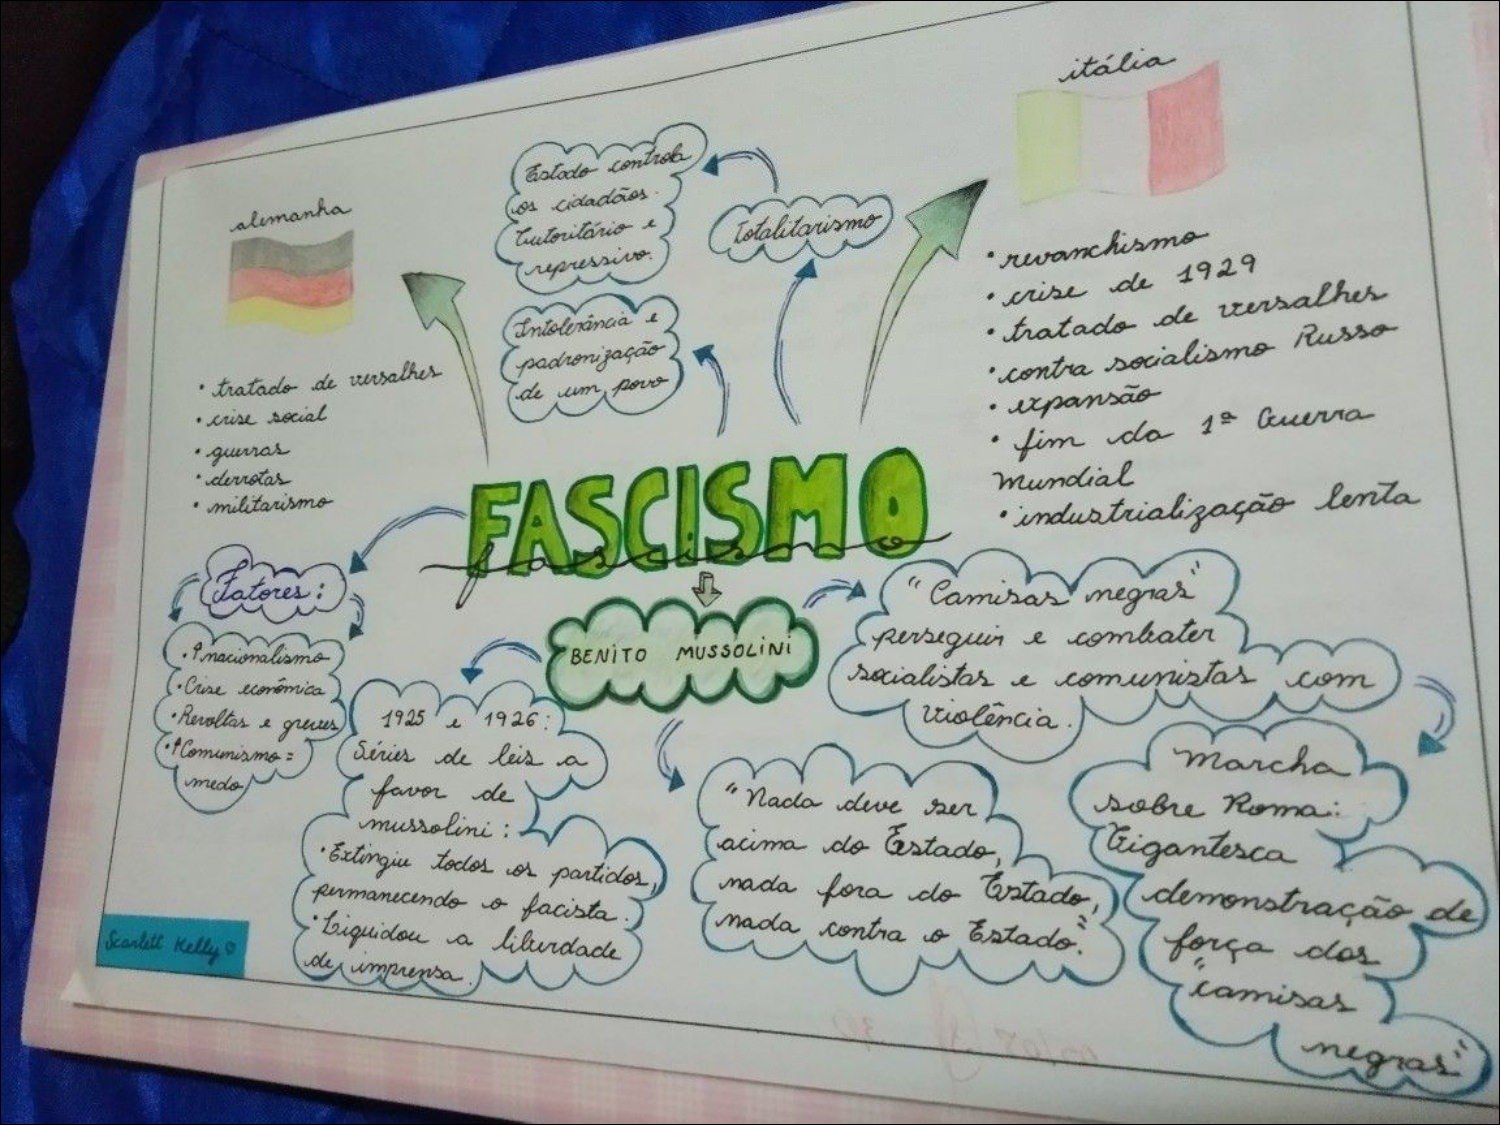 itália
alemanha
Estado controla
os cidadãos.
Autoritário e
repressivo.
Totalitarismo
Intolerância e
padronização
de um povo
• revanchismo
• crise de 1929
• tratado de versalhes
• contra socialismo Russo
• expansão
• fim da 1ª Guerra
Mundial
• industrialização lenta
• tratado de versalhes
• crise social
• guerras
• derrotas
• militarismo
FASCISMO
fascismo
Fatores:
• ↑nacionalismo
• Crise econômica
• Revoltas e greves
• ↑Comunismo =
medo
BENITO MUSSOLINI
"Camisas negras"
perseguir e combater
socialistas e comunistas com
violência.
1925 e 1926:
Séries de leis a
favor de
mussolini:
• Extinguiu todos os partidos,
permanecendo o facista.
• Liquidou a liberdade
de imprensa.
"Nada deve ser
acima do Estado,
nada fora do Estado,
nada contra o Estado".
Marcha
sobre Roma:
Gigantesca
demonstração de
força dos
"camisas
negras"
Scarlett Kelly